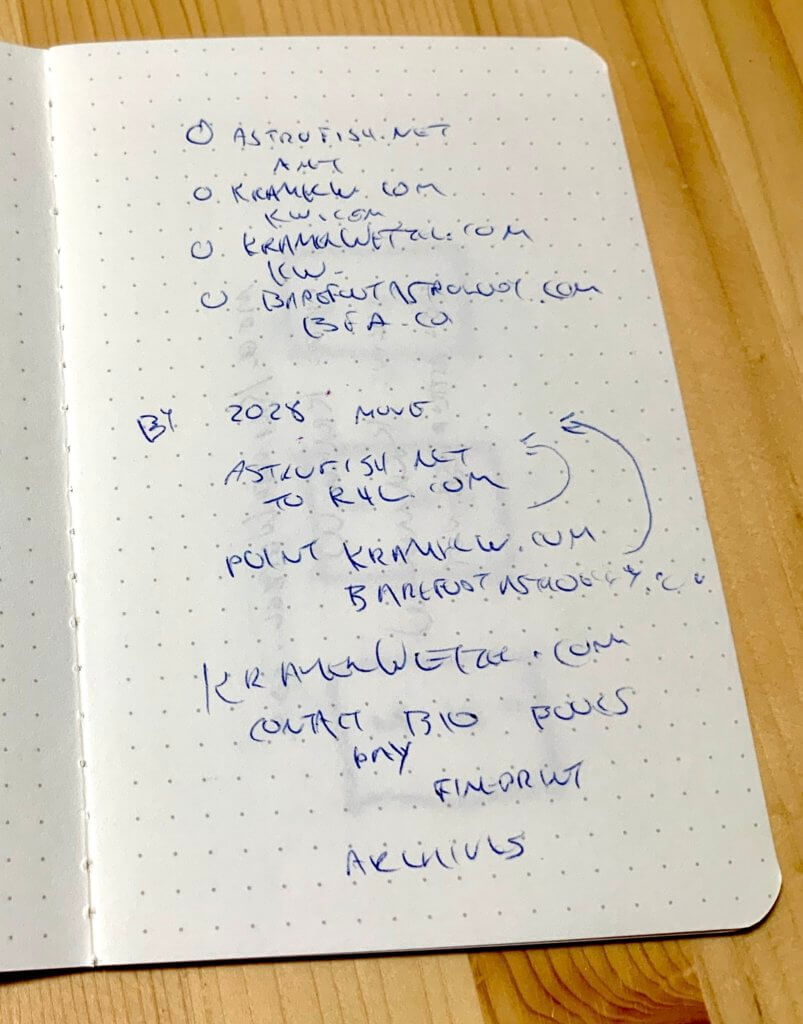 ASTROFISH.NET
KRAMERW.COM
KW.COM
KRAMERWETZEL.COM
KW-
BAREFOOTASTROLOGY.COM
BFA.CO
BY 2028 MOVE
ASTROFISH.NET
TO R4L.COM
POINT KRAMERW.COM
BAREFOOTASTROLOGY.CO
KRAMERWETZEL.COM
CONTACT BIO BOOKS
PAY
FINEPRINT
ARCHIVES